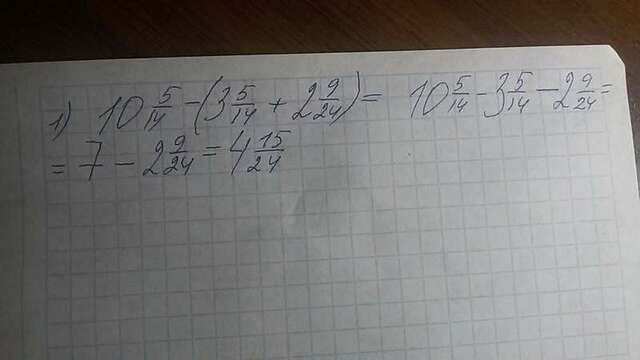 1) 10 5/14 - (3 5/14 + 2 9/24) = 10 5/14 - 3 5/14 - 2 9/24 =
= 7 - 2 9/24 = 4 15/24